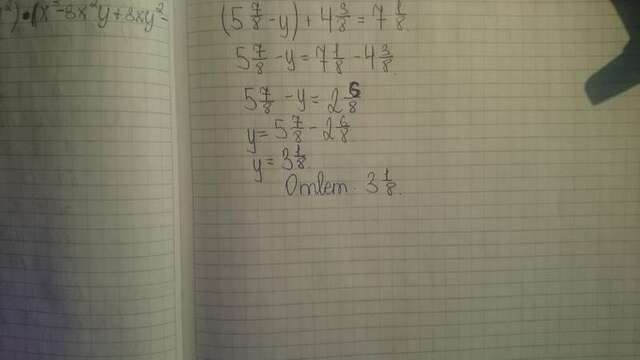 ) • (x² - 8x²y + 8xy² -
(5 7/8 - y) + 4 3/8 = 7 1/8.
5 7/8 - y = 7 1/8 - 4 3/8.
5 7/8 - y = 2 6/8
y = 5 7/8 - 2 6/8
y = 3 1/8.
Ответ: 3 1/8.